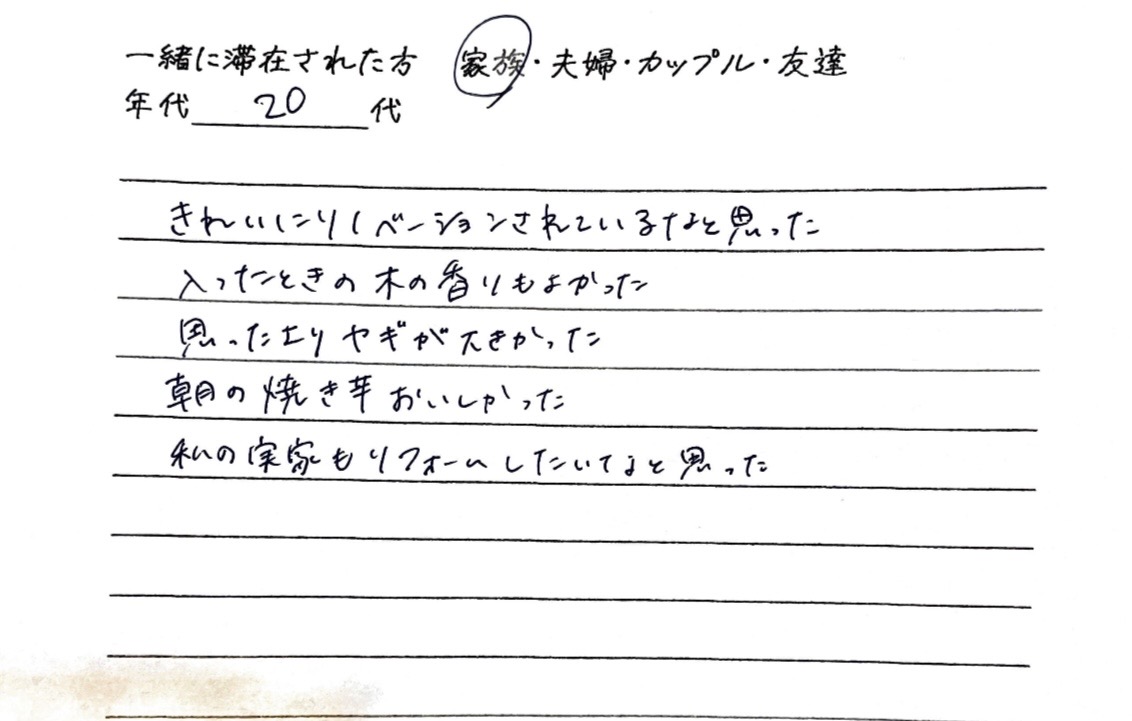 一緒に滞在された方 家族・夫婦・カップル・友達
年代 20 代
きれいにリノベーションされているなと思った
入ったときの木の香りもよかった
思ったよりヤギが大きかった
朝の焼き芋おいしかった
私の実家もリフォームしたいなと思った